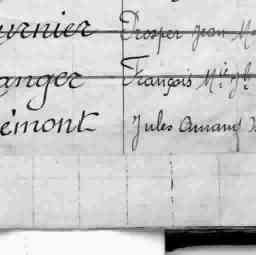 urnier Prosper Jean M
anger François M
émont Jules Amand